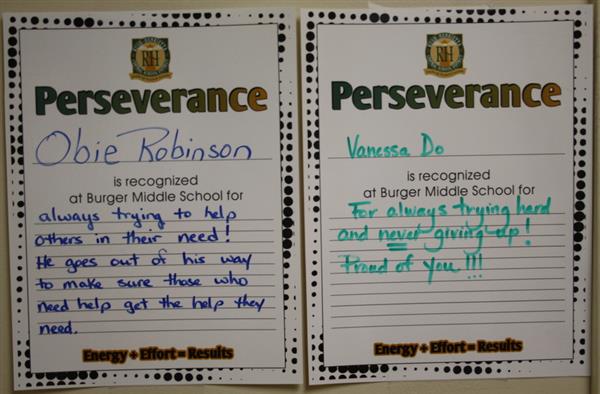 RH
Perseverance
Obie Robinson
is recognized
at Burger Middle School for
always trying to help
others in their need!
He goes out of his way
to make sure those who
need help get the help they
need.
Energy + Effort = Results
RH
Perseverance
Vanessa Do
is recognized
at Burger Middle School for
For always trying hard
and never giving up!
Proud of you!!!
Energy + Effort = Results